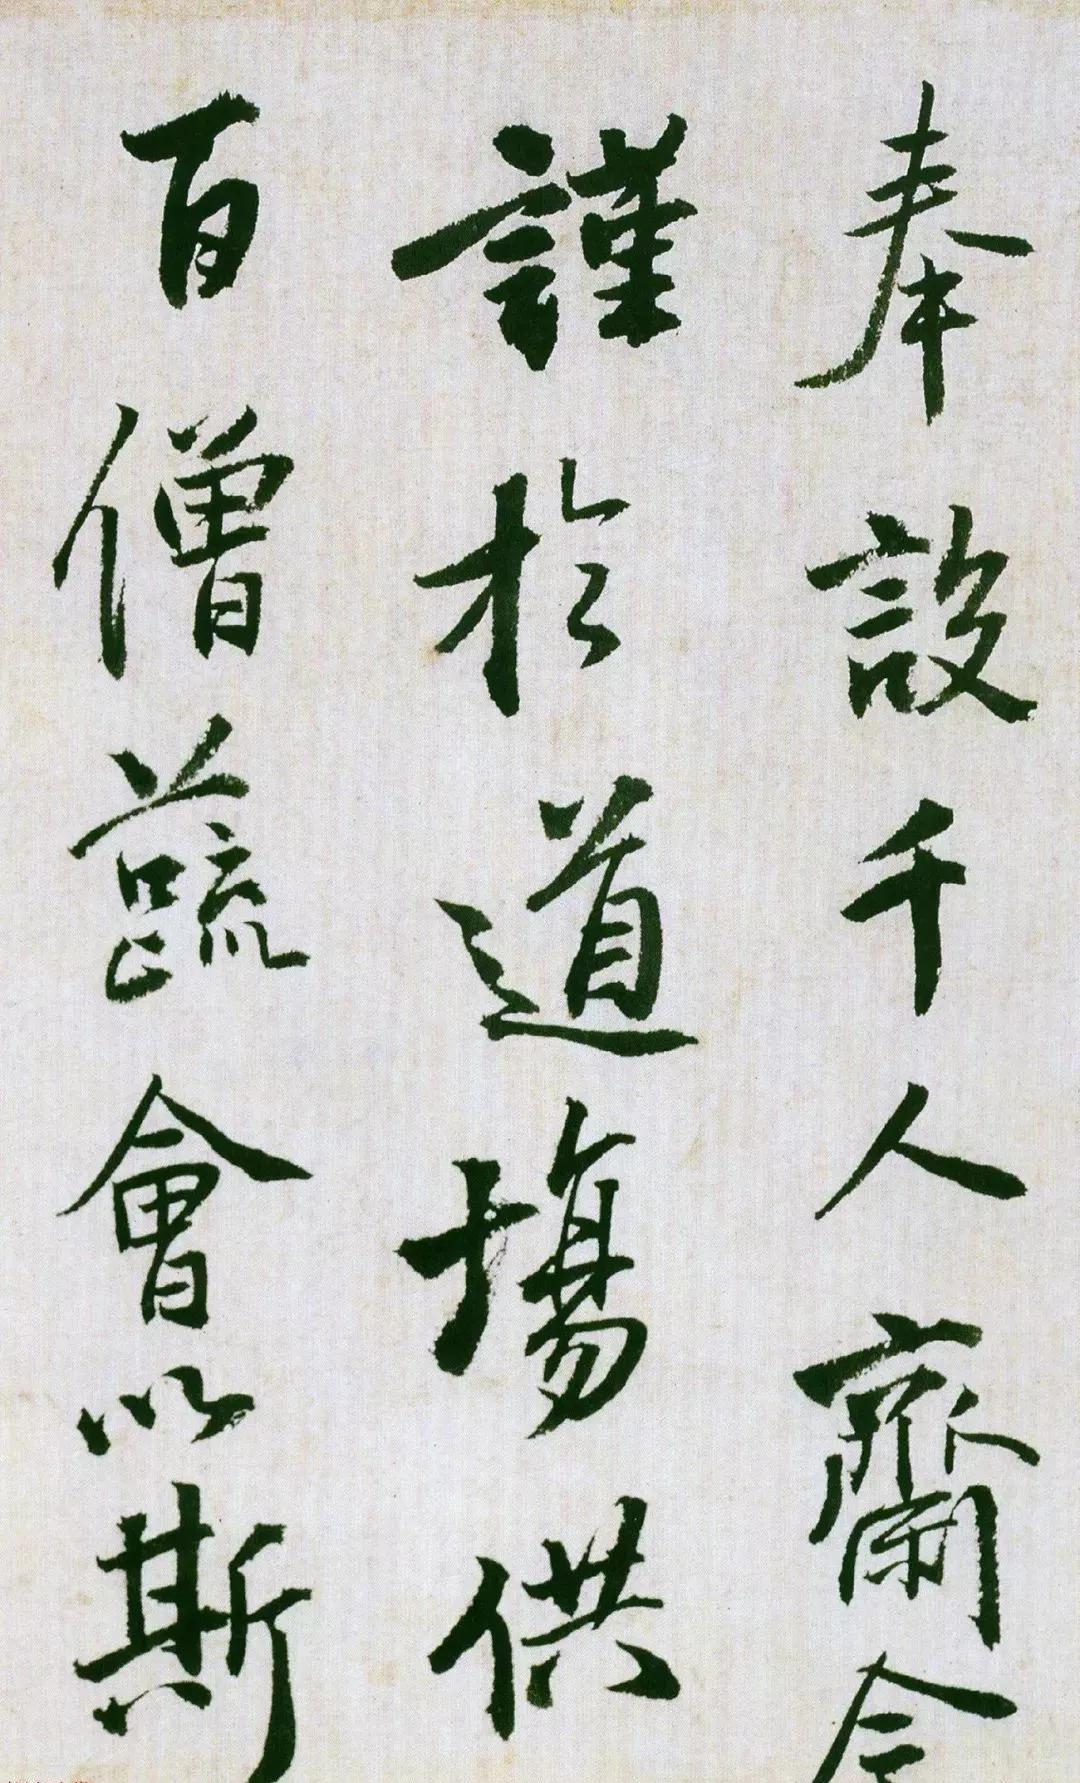 奉設千人齋今
謹於道場供
百僧蔬會以斯